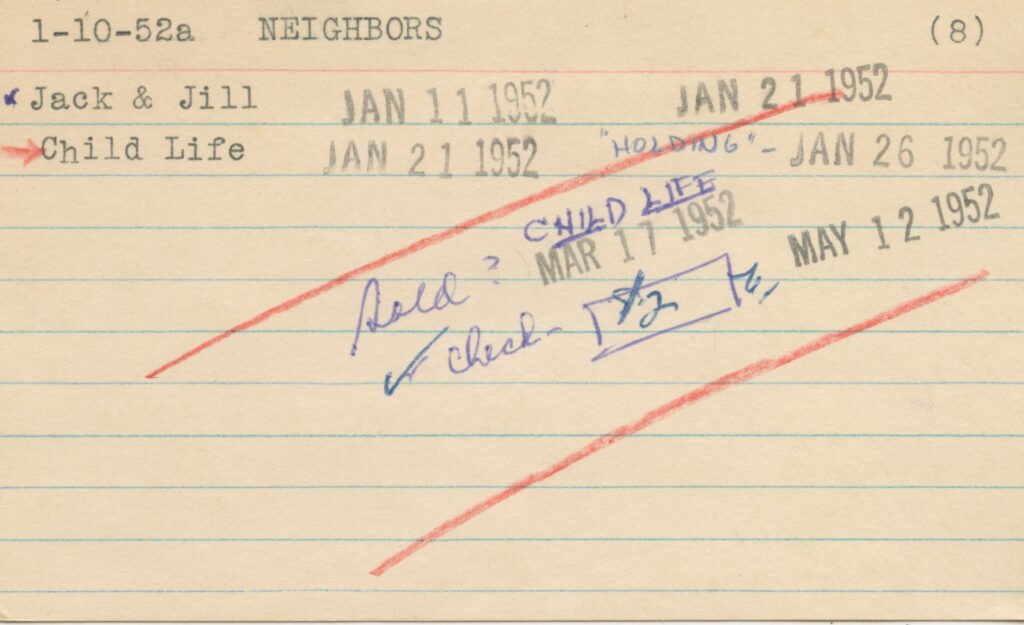 1-10-52a NEIGHBORS (8)
Jack & Jill JAN 11 1952 JAN 21 1952
Child Life JAN 21 1952 "HOLDING"- JAN 26 1952
CHILD LIFE
MAR 17 1952 MAY 12 1952
Sold ?
✓ check-